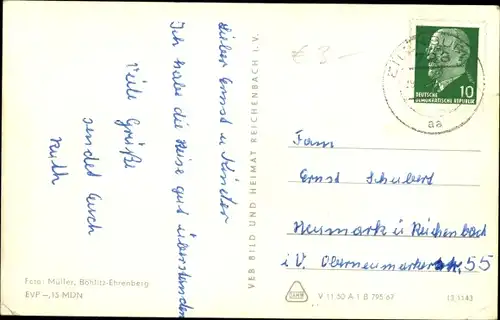 Lieber Ernst u Kinder
Ich habe die Reise gut überstanden
Viele Grüße
sendet Euch
Ruth
Foto: Müller, Böhlitz-Ehrenberg
EVP –,15 MDN
VEB BILD UND HEIMAT REICHENBACH I. V.
€ 3 -
DEUTSCHE
DEMOKRATISCHE REPUBLIK
10
aa
Fam
Ernst Schubert
Neumark ü Reichenbach
i. V. Oberneumarkerstr. 55
V 11 50 A 1 B 795/67